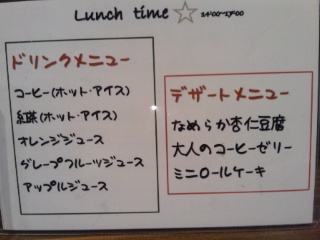 Lunch time☆ 14:00~17:00
ドリンクメニュー
コーヒー(ホット・アイス)
紅茶(ホット・アイス)
オレンジジュース
グレープフルーツジュース
アップルジュース
デザートメニュー
なめらか杏仁豆腐
大人のコーヒーゼリー
ミニロールケーキ